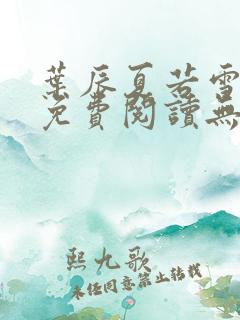 葉辰夏若雪
免費閱讀無
熙九歌
未经同意禁止转载